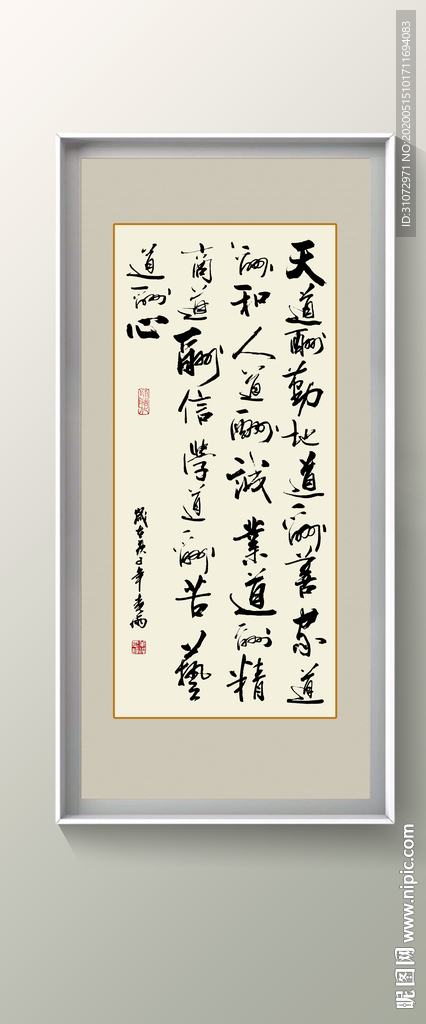 天道酬勤地道酬善家道
酬和人道酬诚業道酬精
商道酬信學道酬苦藝
道酬心
ID:31072971 NO:20200515101711694083
昵图网 www.nipic.com